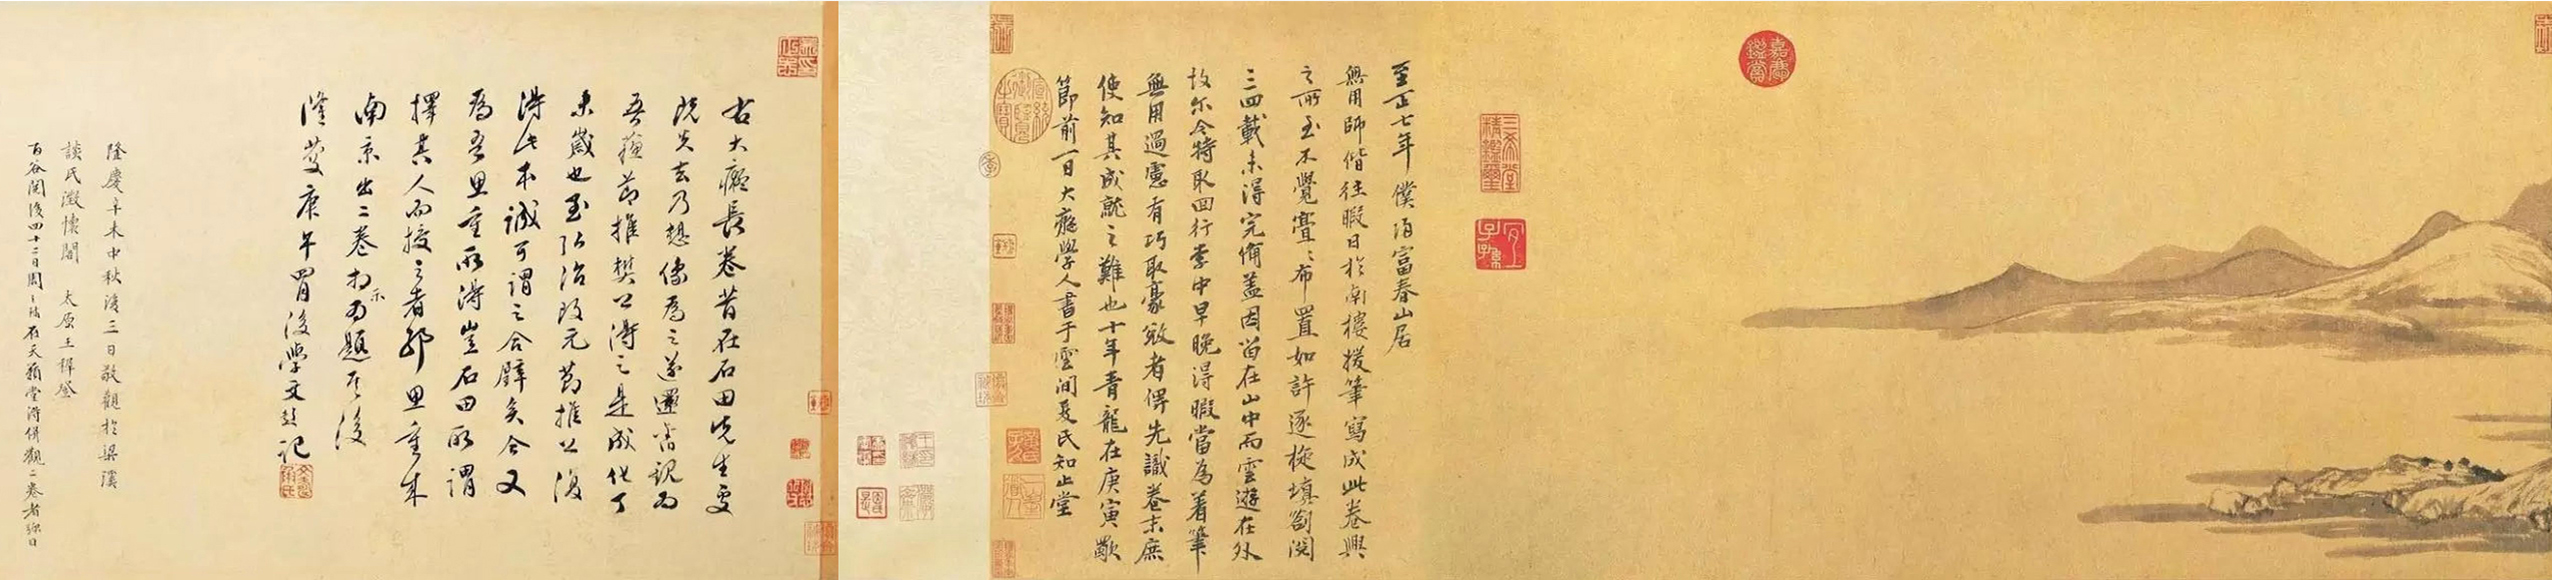 嘉慶鑑賞
三希堂精鑑璽
宜子孫
至正七年僕歸富春山居
無用師偕往暇日於南樓援筆寫成此卷興
之所至不覺亹〻布置如許逐旋填劄閱
三四載未得完備蓋因留在山中而雲遊在外
故尔今特取回行李中早晚得暇當為着筆
無用過慮有巧取豪敓者俾先識卷末庶
使知其成就之難也十年青龍在庚寅歜
節前一日大癡學人書于雲間夏氏知止堂
宣統御覽之寶
右大癡長卷昔在石田先生處
既失去乃想像為之遂還舊觀為
吾蘇節推樊公得之是成化丁
未歲也至弘治改元節推公復
得此本誠可謂之合璧矣今又
為吾思重所得豈石田所謂
擇其人而授之者耶思重來
南京出二卷相示為題其後
隆慶庚午四月後學文彭記
隆慶辛未中秋後三日敬觀於梁溪
談氏澂懷閣 太原王穉登
百谷閱後四十三日周天球在天籟堂得併觀二卷者弥日